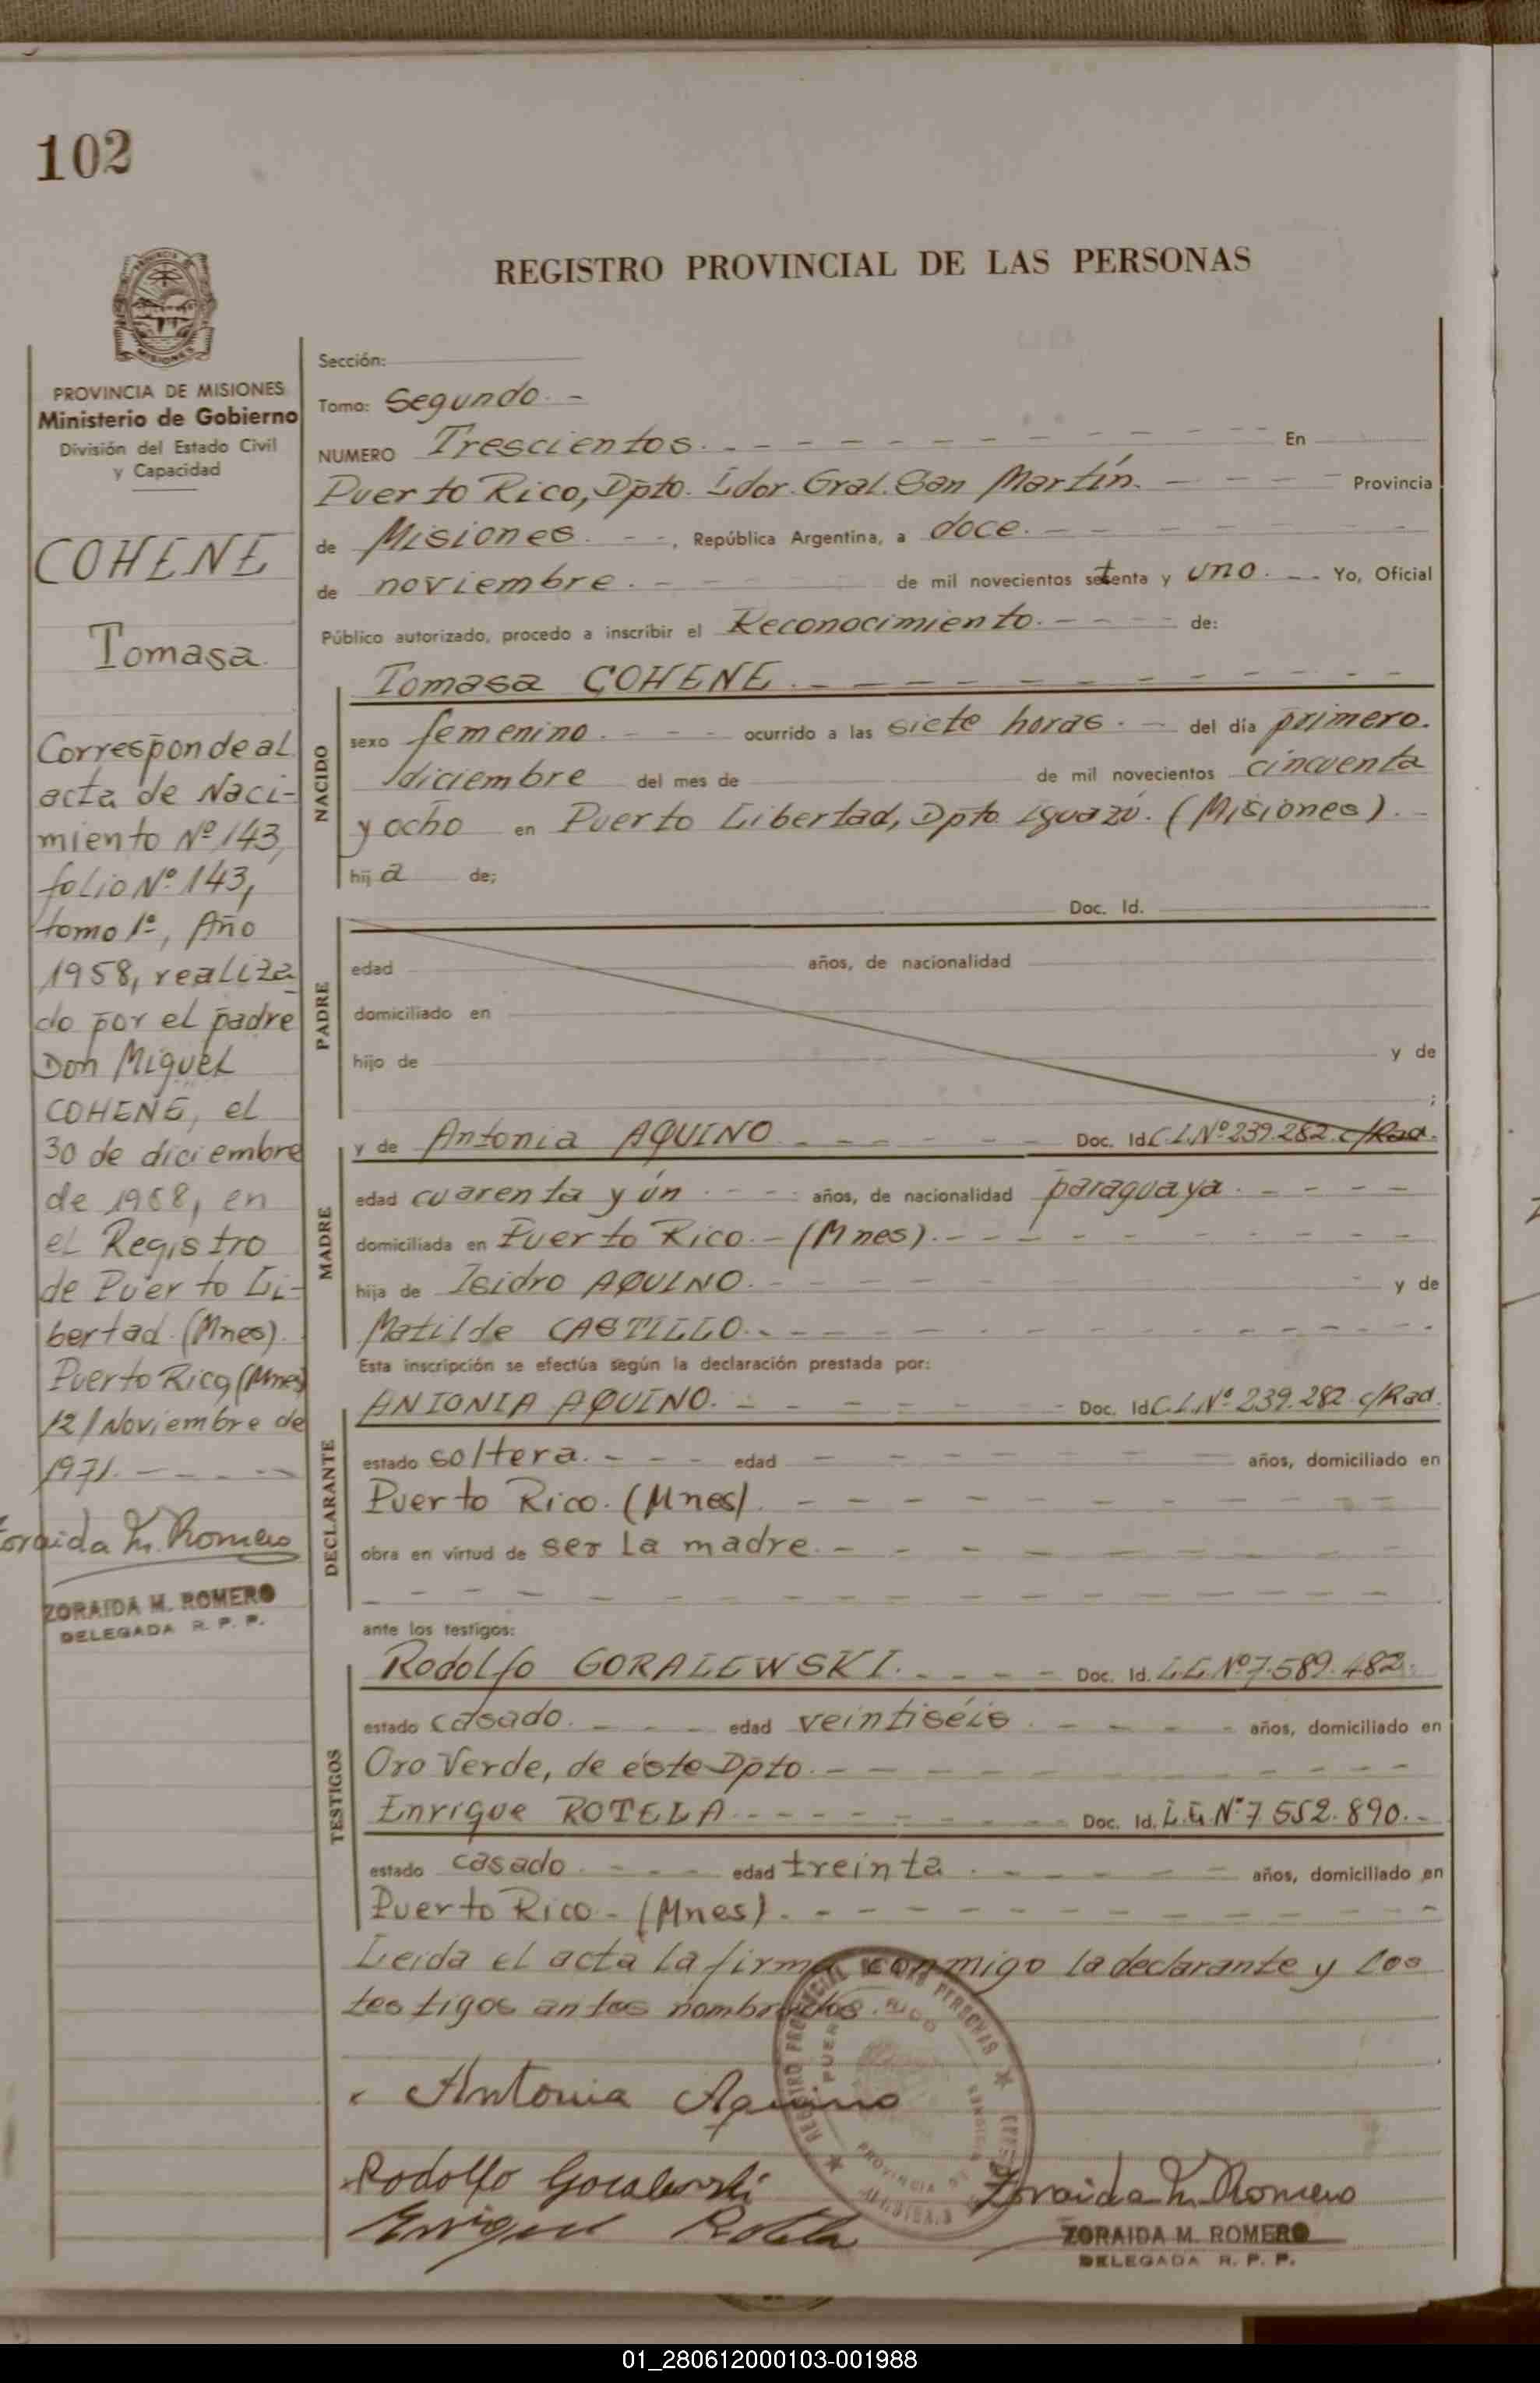 102
REGISTRO PROVINCIAL DE LAS PERSONAS
PROVINCIA DE MISIONES
Ministerio de Gobierno
División del Estado Civil
y Capacidad
COHENE
Tomasa.
Corresponde al
acta de Naci-
miento Nº 143,
folio Nº 143,
tomo 1º, Año
1958, realiza
do por el padre
Don Miguel
COHENE, el
30 de diciembre
de 1958, en
el Registro
de Puerto Li-
bertad. (Mnes).
Puerto Rico, (Mnes)
12/Noviembre de
1971. - - - -
Zoraida M. Romero
ZORAIDA M. ROMERO
DELEGADA R. P. P.
Sección:
Tomo: Segundo. -
NUMERO Trescientos. - - - - - - - - - En
Puerto Rico, Dpto. Ldor. Gral. San Martín. - - - - Provincia
de Misiones. - -, República Argentina, a doce. - - - - - -
de noviembre. - - - - de mil novecientos setenta y uno. - - Yo, Oficial
Público autorizado, procedo a inscribir el Reconocimiento. - - - - de:
NACIDO
Tomasa COHENE. - - - - - - - - - -
sexo femenino. - - - ocurrido a las siete horas. - del día primero.
diciembre del mes de de mil novecientos cincuenta
y ocho en Puerto Libertad, Dpto Iguazú. (Misiones). -
hija de;
PADRE
Doc. Id.
edad años, de nacionalidad
domiciliado en
hijo de y de
;
MADRE
y de Antonia AQUINO - - - - - - Doc. Id C.I. Nº 239.282 c/Rad.
edad cuarenta y ún - - - años, de nacionalidad paraguaya. - - - -
domiciliada en Puerto Rico. - (Mnes). - - - - - - - -
hija de Isidro AQUINO. - - - - - - - - y de
Matilde CASTILLO. - - - - - - - - - - -
Esta inscripción se efectúa según la declaración prestada por:
DECLARANTE
ANTONIA AQUINO. - - - - - - - Doc. Id C.I. Nº 239.282 c/Rad.
estado soltera. - - - edad - - - - - - años, domiciliado en
Puerto Rico. (Mnes). - - - - - - - - - -
obra en virtud de ser la madre. - - - - - - - - -
- - - - - - - - - - - - - - -
ante los testigos:
TESTIGOS
Rodolfo GORALEWSKI. - - - - Doc. Id. L.E. Nº 7.589.482.
estado casado. - - - edad veintiséis. - - - - - años, domiciliado en
Oro Verde, de éste Dpto. - - - - - - - - - -
Enrique ROTELA - - - - - - - - Doc. Id. L.E. Nº 7.552.890. -
estado casado. - - - edad treinta. - - - - - - años, domiciliado en
Puerto Rico - (Mnes). - - - - - - - - - - -
Leída el acta la firma conmigo la declarante y los
testigos antes nombrados.
Antonia Aquino
Rodolfo Goralewski
Enrique Rotela
Zoraida M. Romero
ZORAIDA M. ROMERO
DELEGADA R. P. P.
REGISTRO PROVINCIAL DE LAS PERSONAS
PUERTO RICO
PROVINCIA DE MISIONES
01_280612000103-001988